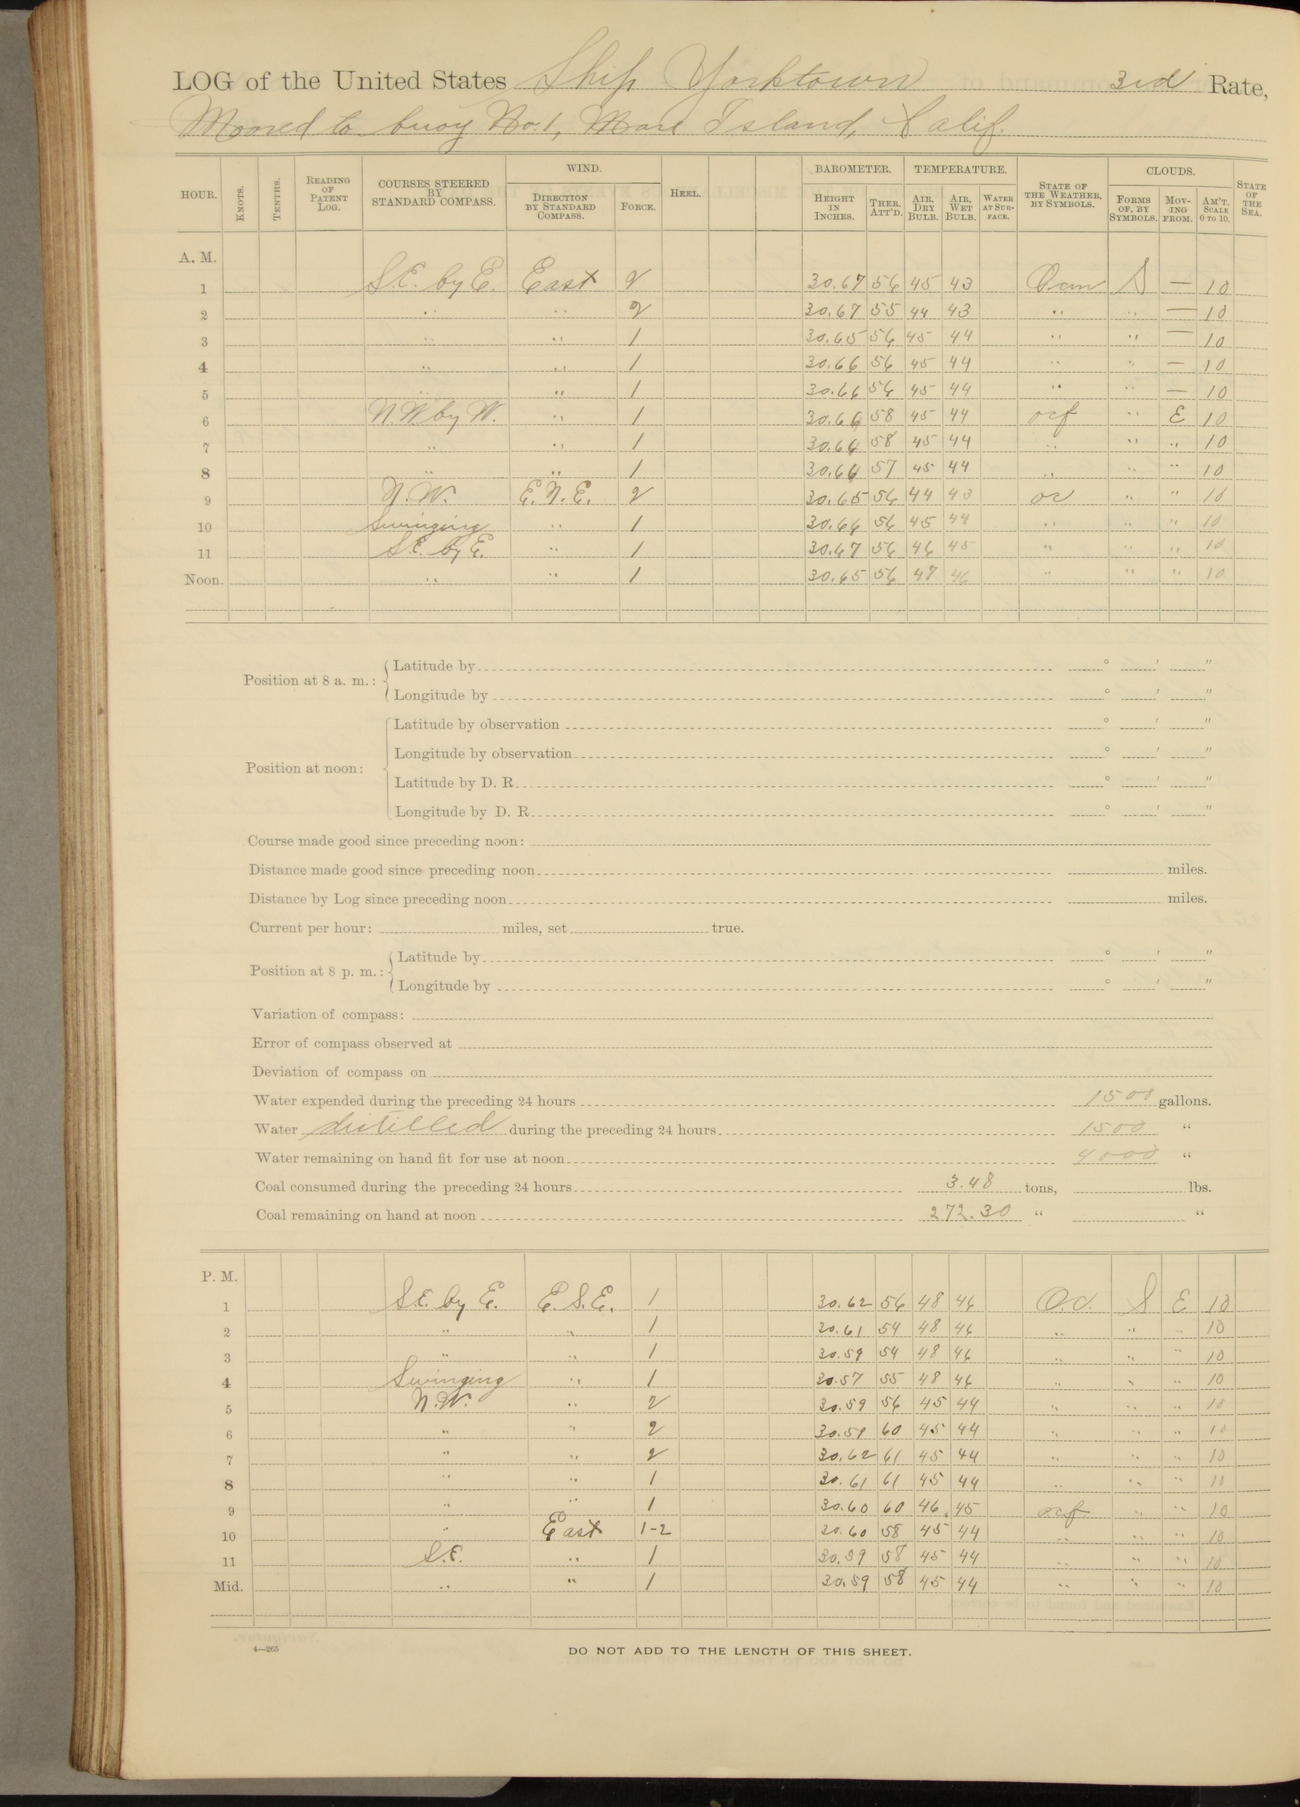 LOG of the United States Ship Yorktown 3rd Rate,
Moored to buoy No. 1, Mare Island, Calif.
HOUR. KNOTS. TENTHS. READING OF PATENT LOG. COURSES STEERED BY STANDARD COMPASS. WIND. DIRECTION BY STANDARD COMPASS. FORCE. HEEL. BAROMETER. HEIGHT IN INCHES. THER. ATT'D. TEMPERATURE. AIR, DRY BULB. AIR, WET BULB. WATER AT SURFACE. STATE OF THE WEATHER, BY SYMBOLS. CLOUDS. FORMS OF, BY SYMBOLS. MOVING FROM. AM'T. SCALE 0 TO 10. STATE OF THE SEA.
A. M.
1 S.E. by E. East 2 30.67 56 45 43 S — 10
2 " " 2 30.67 55 44 43 " " — 10
3 " " 1 30.65 56 45 44 " " — 10
4 " " 1 30.66 56 45 44 " " — 10
5 " " 1 30.66 56 45 44 " " — 10
6 N.W. by W. " 1 30.66 58 45 44 ocf " E 10
7 " " 1 30.64 58 45 44 " " " 10
8 " " 1 30.64 57 45 44 " " " 10
9 N.W. E.N.E. 2 30.65 56 44 43 oc " " 10
10 Swinging " 1 30.66 56 45 44 " " " 10
11 S.E. by E. " 1 30.67 56 46 45 " " " 10
Noon. " " 1 30.65 56 47 46 " " " 10
Position at 8 a. m.: Latitude by ° ' "
Longitude by ° ' "
Position at noon: Latitude by observation ° ' "
Longitude by observation ° ' "
Latitude by D. R. ° ' "
Longitude by D. R. ° ' "
Course made good since preceding noon:
Distance made good since preceding noon miles.
Distance by Log since preceding noon miles.
Current per hour: miles, set true.
Position at 8 p. m.: Latitude by ° ' "
Longitude by ° ' "
Variation of compass:
Error of compass observed at
Deviation of compass on
Water expended during the preceding 24 hours 1500 gallons.
Water distilled during the preceding 24 hours 1500 "
Water remaining on hand fit for use at noon 4000 "
Coal consumed during the preceding 24 hours 3.48 tons, lbs.
Coal remaining on hand at noon 272.30 " "
P. M.
1 S.E. by E. E.S.E. 1 30.62 56 48 46 O.c. S E 10
2 " " 1 30.61 54 48 46 " " " 10
3 " " 1 30.59 54 48 46 " " " 10
4 Swinging " 1 30.57 55 48 46 " " " 10
5 N.W. " 2 30.59 56 45 44 " " " 10
6 " " 2 30.59 60 45 44 " " " 10
7 " " 2 30.62 61 45 44 " " " 10
8 " " 1 30.61 61 45 44 " " " 10
9 " " 1 30.60 60 46 45 ocf " " 10
10 " East 1-2 30.60 58 45 44 " " " 10
11 S.E. " 1 30.59 58 45 44 " " " 10
Mid. " " 1 30.59 58 45 44 " " " 10
4—265 DO NOT ADD TO THE LENGTH OF THIS SHEET.